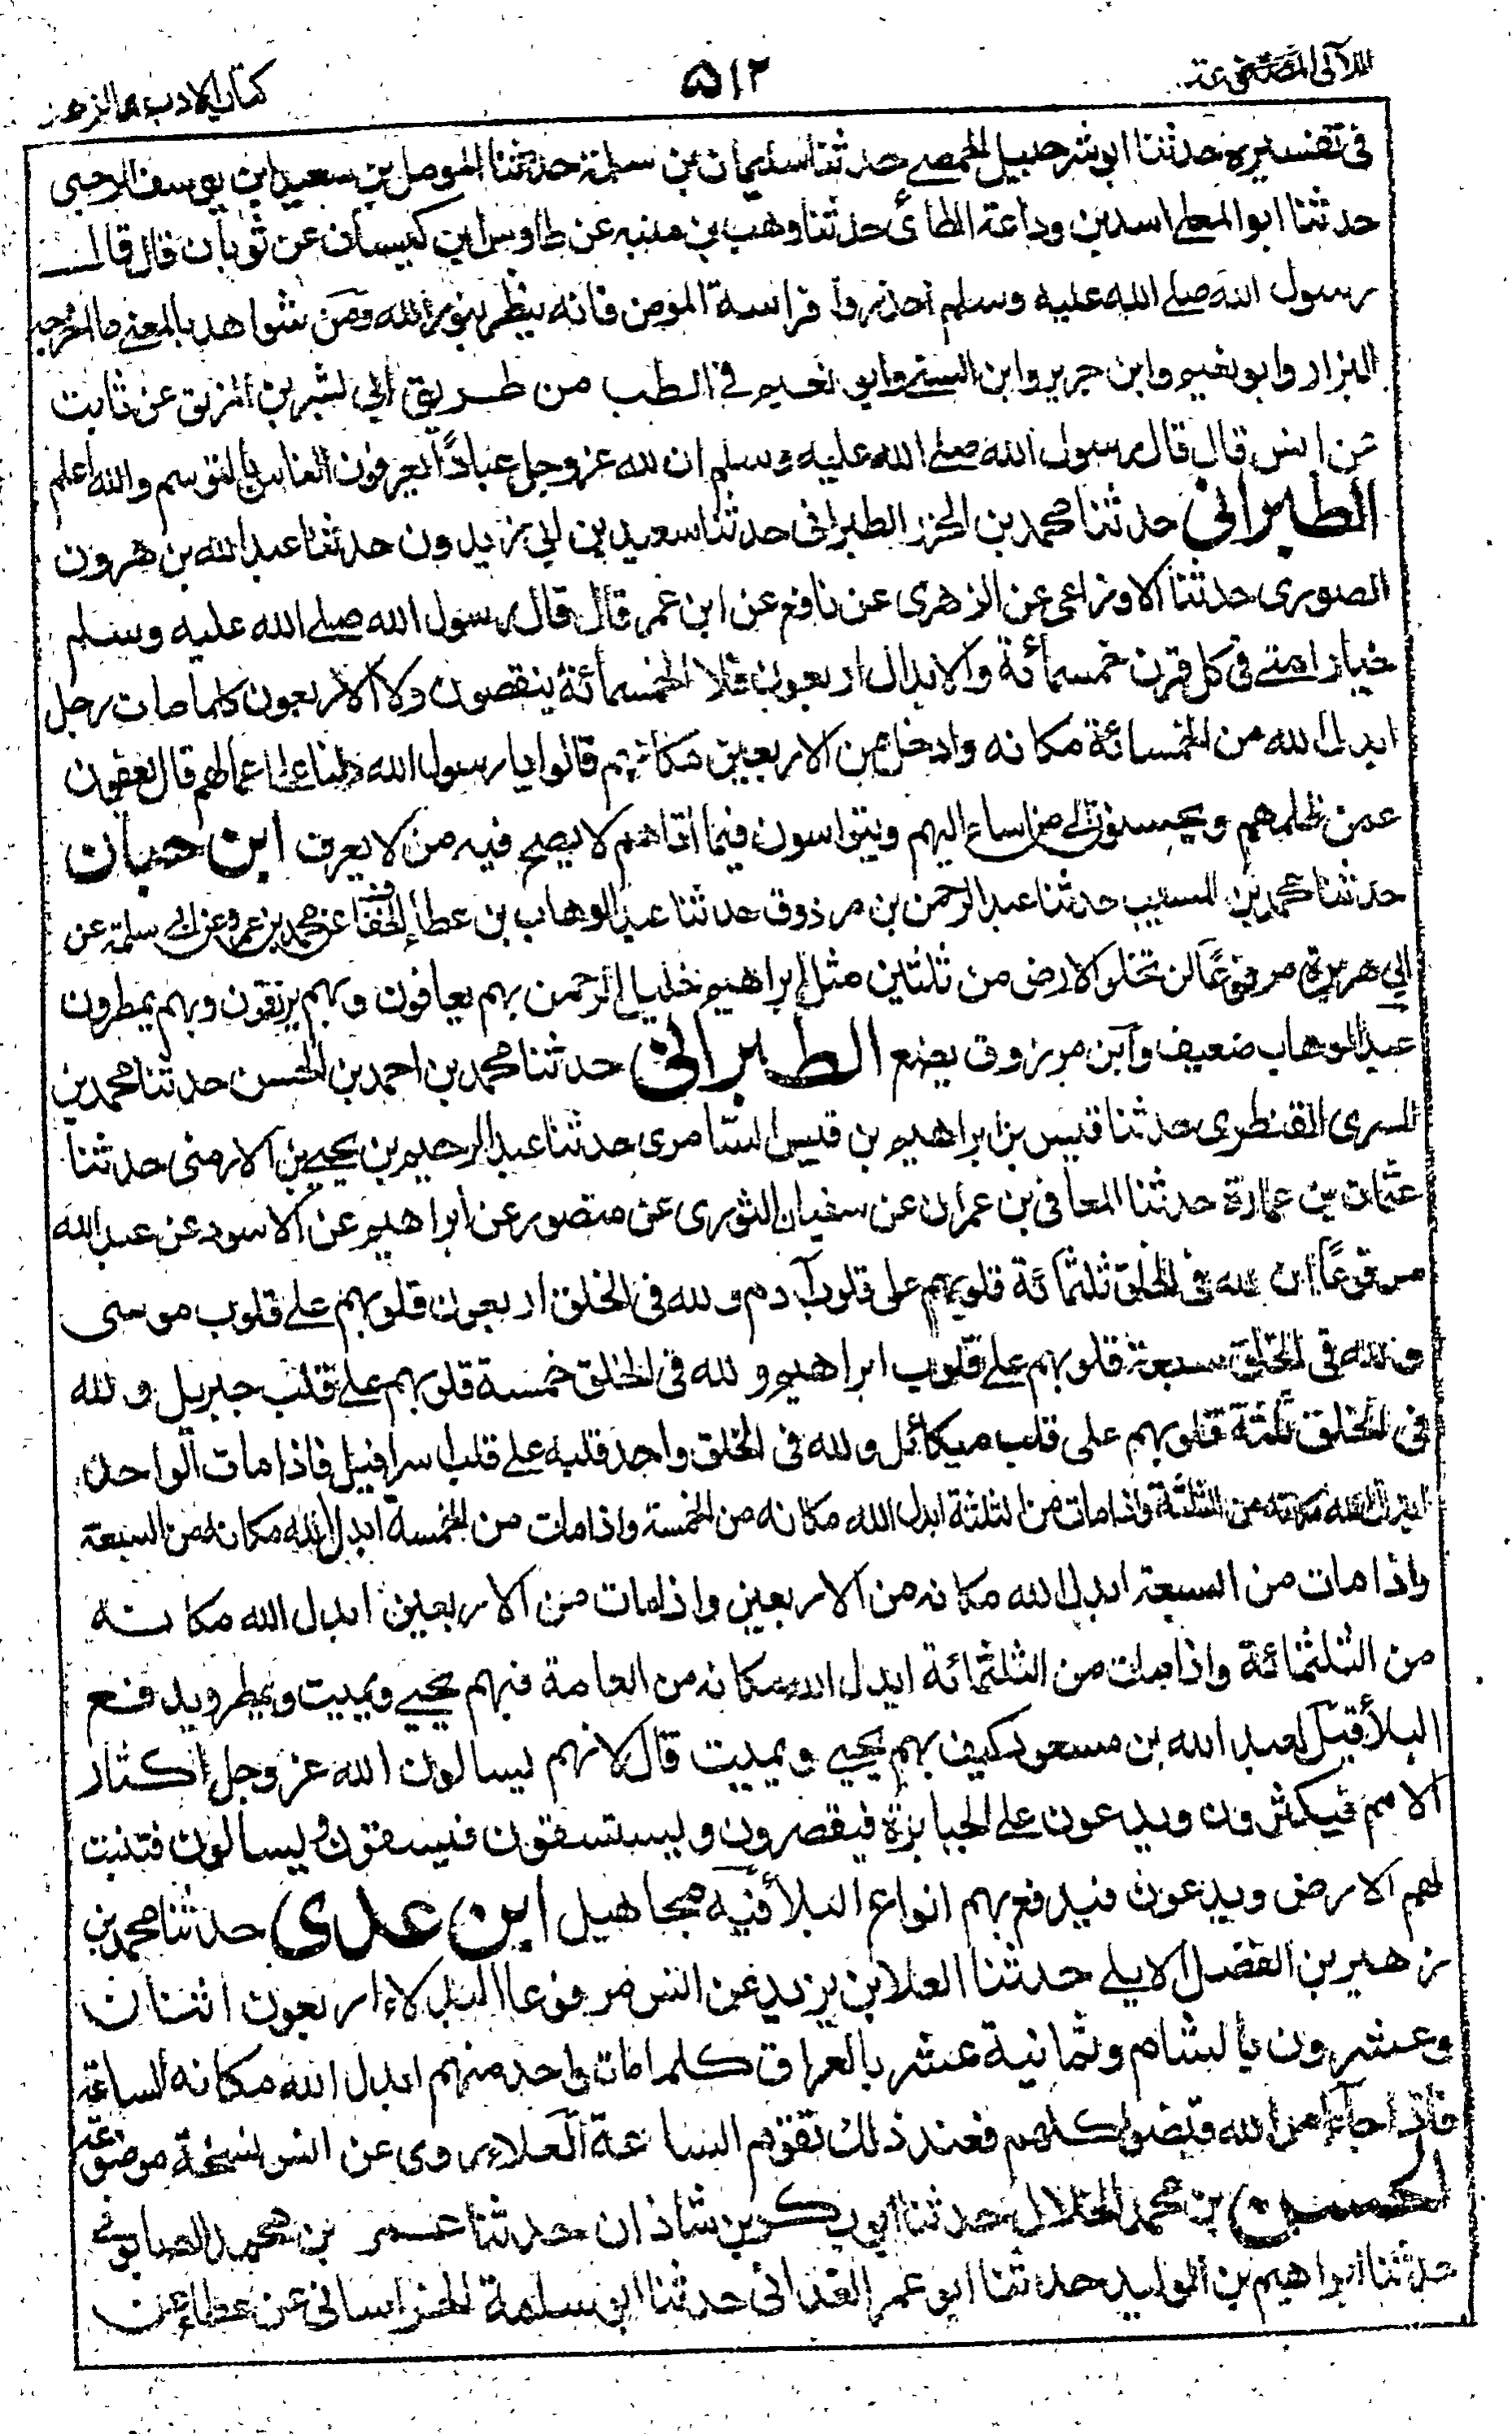 اللآلى المصنوعة
۵۱۲
كتاب الادب والزهد
فى تفسيره حدثنا ابو شرحبيل الحمصے حدثنا سليمان بن سلمة حدثنا المومل بن سعيد ابن يوسف الرحبى
حدثنا ابو المعلے اسد بن وداعة الطائى حدثنا وهب بن منبه عن طاوس ابن كيسان عن ثوبان قال قال
رسول الله صلے الله عليه وسلم احذروا فراسة المومن فانه ينظر بنور الله ومن شواهد بالمعنے ما اخرجه
البزار وابو نعيم وابن جرير وابن السنے وابو نعيم فے الطب من طريق ابي بشر بن المزلق عن ثابت
عن انس قال قال رسول الله صلے الله عليه وسلم ان لله عز وجل عباداً يعرفون الناس بالتوسم والله اعلم
الطبرانى حدثنا محمد بن الخزر الطبرانى حدثنا سعيد بن ابي زيدون حدثنا عبد الله بن هرون
الصورى حدثنا الاوزاعى عن الزهرى عن نافع عن ابن عمر قال قال رسول الله صلے الله عليه وسلم
خيار امتے فى كل قرن خمسمأئة والابدال اربعون فلا الخمسمأئة ينقصون ولا الاربعون كلما مات رجل
ابدل الله من الخمسائة مكانه وادخل من الاربعين مكانهم قالوا يا رسول الله دلنا على اعمالهم قال يعفون
عمن ظلمهم ويحسنون الى من اساء اليهم ويتواسون فيما اتاهم لا يصح فيه من لا يعرف ابن حبان
حدثنا محمد بن المسيب حدثنا عبد الرحمن بن مرزوق حدثنا عبد الوهاب بن عطاء الخفاف عن محمد بن عمرو عن ابي سلمة عن
ابي هريرة مرفوعاً لن تخلو الارض من ثلثين مثل ابراهيم خليل الرحمن بهم يعافون وبهم يرزقون وبهم يمطرون
عبد الوهاب ضعيف وآبن مرزوق يضع الطبرانى حدثنا محمد بن احمد بن الحسن حدثنا محمد بن
السرى القنطرى حدثنا قيس بن ابراهيم بن قيس السامرى حدثنا عبد الرحيم بن يحيے بن الارمنى حدثنا
عثمان بن عمارة حدثنا المعافى بن عمران عن سفيان الثورى عن منصور عن ابراهيم عن الاسود عن عبد الله
مرفوعاً ان لله فى الخلق ثلثمائة قلوبهم على قلوب آدم ولله فى الخلق اربعون قلوبهم علے قلوب موسى
ولله فى الخلق سبعة قلوبهم علے قلوب ابراهيم ولله فى الخلق خمسة قلوبهم علے قلب جبريل ولله
فى الخلق ثلثة قلوبهم على قلب ميكائل ولله فى الخلق واحد قلبه علے قلب اسرافيل فاذا مات الواحد
ابدل الله مكانه من الثلثة واذا مات من الثلثة ابدل الله مكانه من الخمسة واذا مات من الخمسة ابدل الله مكانه من السبعة
واذا مات من السبعة ابدل الله مكانه من الاربعين واذا مات من الاربعين ابدل الله مكانه
من الثلثمائة واذا مات من الثلثمائة ابدل الله مكانه من العامة فبهم يحيے ويميت ويمطر ويدفع
البلأ قيل لعبد الله بن مسعود كيف بهم يحيے ويميت قال لانهم يسالون الله عز وجل اكثار
الامم فيكثرون ويدعون على الجبابرة فيقصرون ويستسقون فيسقون ويسالون فتنبت
لهم الارض ويدعون فيدفع بهم انواع البلأ فيه مجاهيل ابن عدى حدثنا محمد بن
زهير بن الفضل الايلے حدثنا العلا بن يزيد عن انس مرفوعا البدلاء اربعون اثنان
وعشرون بالشام وثمانية عشر بالعراق كلما مات واحد منهم ابدل الله مكانه الساعة
فاذا جآء امر الله قبضوا كلهم فعند ذلك تقوم الساعة آلعلاء روى عن انس نسخة موضوعة
الحسن بن محمد الخلال حدثنا ابو بكر بن شاذان حدثنا عمر بن محمد الصابونے
حدثنا ابراهيم بن الوليد حدثنا ابو عمر الغدانى حدثنا ابو سلمة الخراسانى عن عطاء عن